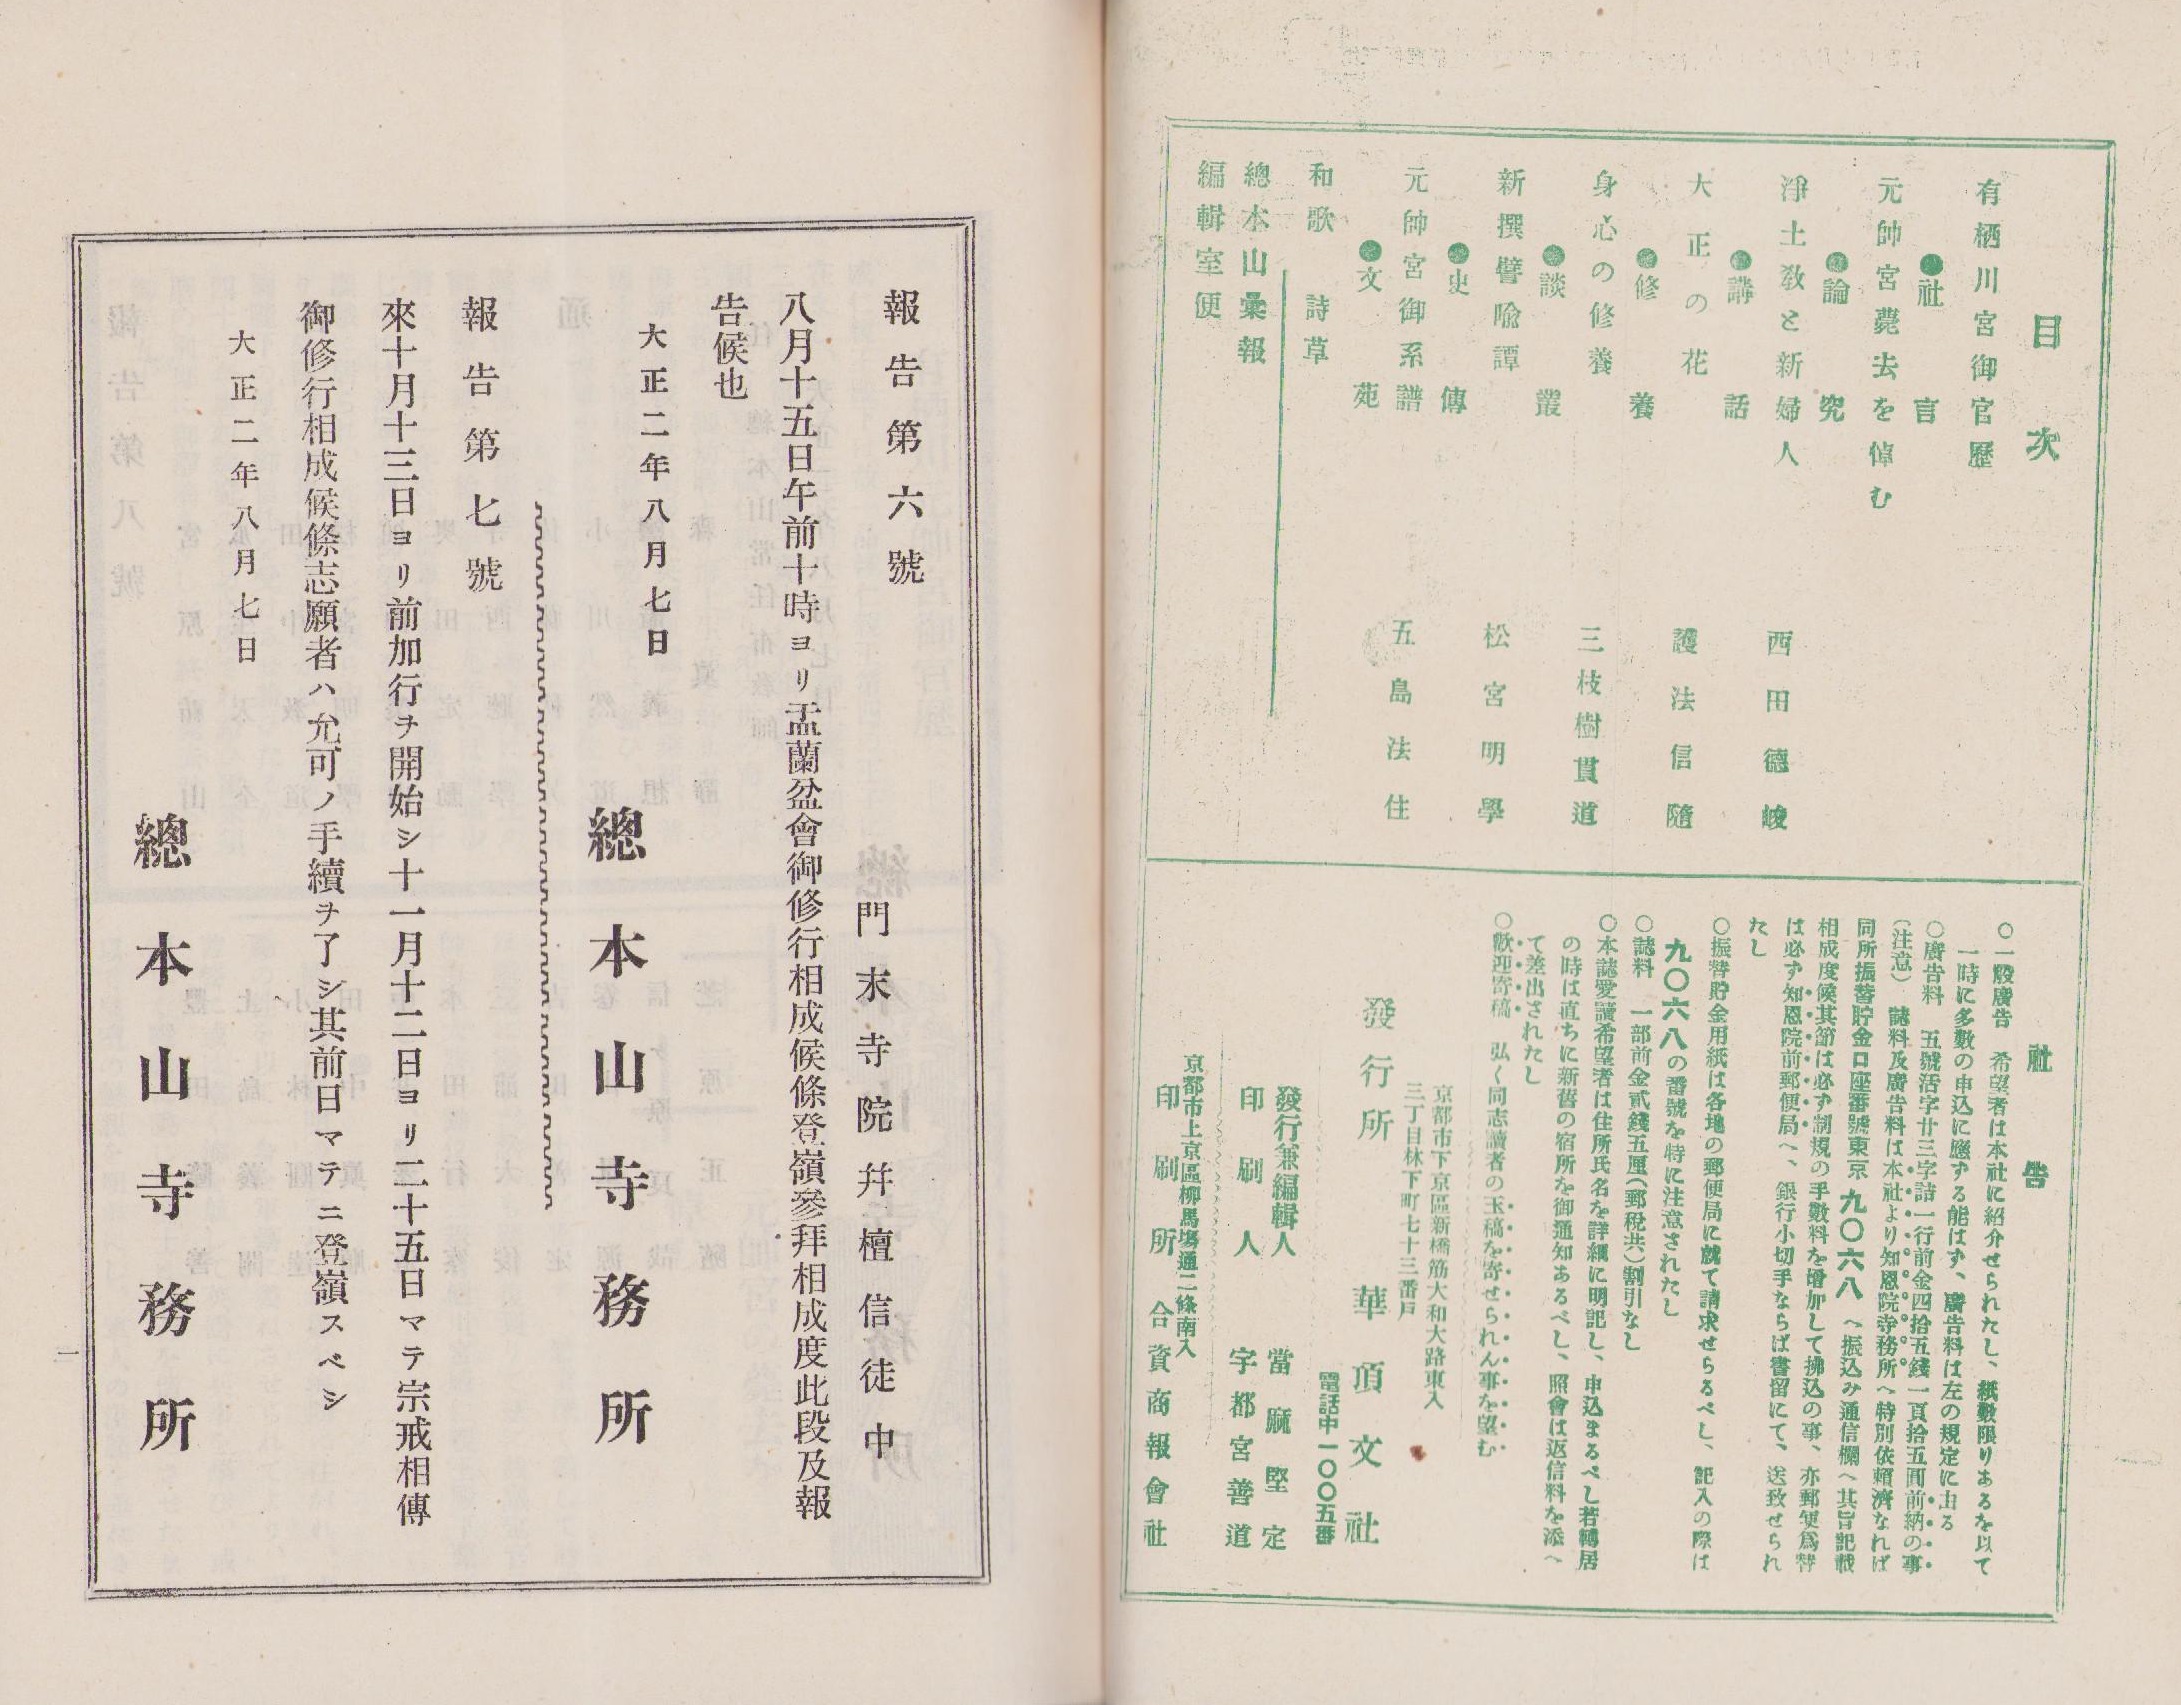 目次
有栖川宮御官歷
●社言
元帥宮薨去を悼む
●論究
淨土敎と新婦人　西田德峻
●講話
大正の花　護法信隨
●修養
身心の修養　三枝樹貫道
●談叢
新撰譬喩譚　松宮明學
●史傳
元帥宮御系譜　五島法住
●文苑
和歌　詩草
總本山彙報
編輯室便
社告
○一般廣告　希望者は本社に紹介せられたし、紙數限りあるを以て
一時に多數の申込に應ずる能はず、廣告料は左の規定に由る
○廣告料　五號活字廿三字詰一行前金四拾五錢一頁拾五圓前納の事
（注意）　誌料及廣告料は本社より知恩院寺務所へ特別依賴濟なれば
同所振替貯金口座番號東京九〇六八へ振込み通信欄へ其旨記載
相成度候其節は必ず制規の手數料を增加して拂込の事、亦郵便爲替
は必ず知恩院前郵便局へ、銀行小切手ならば書留にて、送致せられ
たし
○振替貯金用紙は各地の郵便局に就て請求せらるべし、記入の際は
九〇六八の番號を特に注意されたし
○誌料　一部前金貳錢五厘（郵稅共）割引なし
○本誌愛讀希望者は住所氏名を詳細に明記し、申込まるべし若轉居
の時は直ちに新舊の宿所を御通知あるべし、照會は返信料を添へ
て差出されたし
○歡迎寄稿　弘く同志讀者の玉稿を寄せられん事を望む
京都市下京區新橋筋大和大路東入
三丁目林下町七十三番戶
發行所　華頂文社
電話中一〇〇五番
發行兼編輯人　當麻堅定
印刷人　宇都宮善道
京都市上京區柳馬塲通二條南入
印刷所　合資商報會社
報告第六號
門末寺院幷檀信徒中
八月十五日午前十時ヨリ盂蘭盆會御修行相成候條登嶺參拜相成度此段及報
告候也
大正二年八月七日
總本山寺務所
報告第七號
來十月十三日ヨリ前加行ヲ開始シ十一月十二日ヨリ二十五日マテ宗戒相傳
御修行相成候條志願者ハ允可ノ手續ヲ了シ其前日マテニ登嶺スベシ
大正二年八月七日
總本山寺務所
一